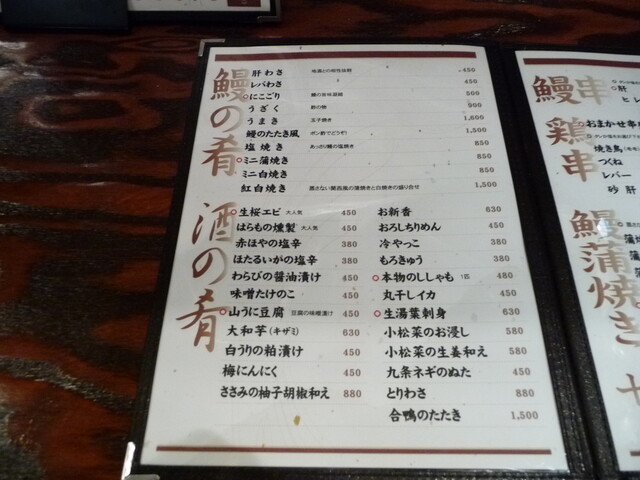 鰻の肴
肝わさ 地酒との相性抜群 450
レバわさ 450
にこごり 鰻の旨味凝縮 500
うざく 酢の物 900
うまき 玉子焼き 1,600
鰻のたたき風 ポン酢でどうぞ! 1,500
塩焼き あっさり鰻の塩焼き 850
ミニ蒲焼き 850
ミニ白焼き 850
紅白焼き 蒸さない関西風の蒲焼きと白焼きの盛り合せ 1,500
酒の肴
生桜エビ 大人気 450
はらもの燻製 大人気 450
赤ほやの塩辛 380
ほたるいかの塩辛 380
わらびの醤油漬け 450
味噌たけのこ 450
山うに豆腐 豆腐の味噌漬け 450
大和芋(キザミ) 630
白うりの粕漬け 450
梅にんにく 450
ささみの柚子胡椒和え 880
お新香 630
おろしちりめん 450
冷やっこ 380
もろきゅう 380
本物のししゃも 1匹 480
丸干しイカ 450
生湯葉刺身 630
小松菜のお浸し 580
小松菜の生姜和え 580
九条ネギのぬた 450
とりわさ 880
合鴨のたたき 1,500
鰻串
肝
ヒレ
鶏串
おまかせ串
焼き鳥
つくね
レバー
砂肝
鰻蒲焼き